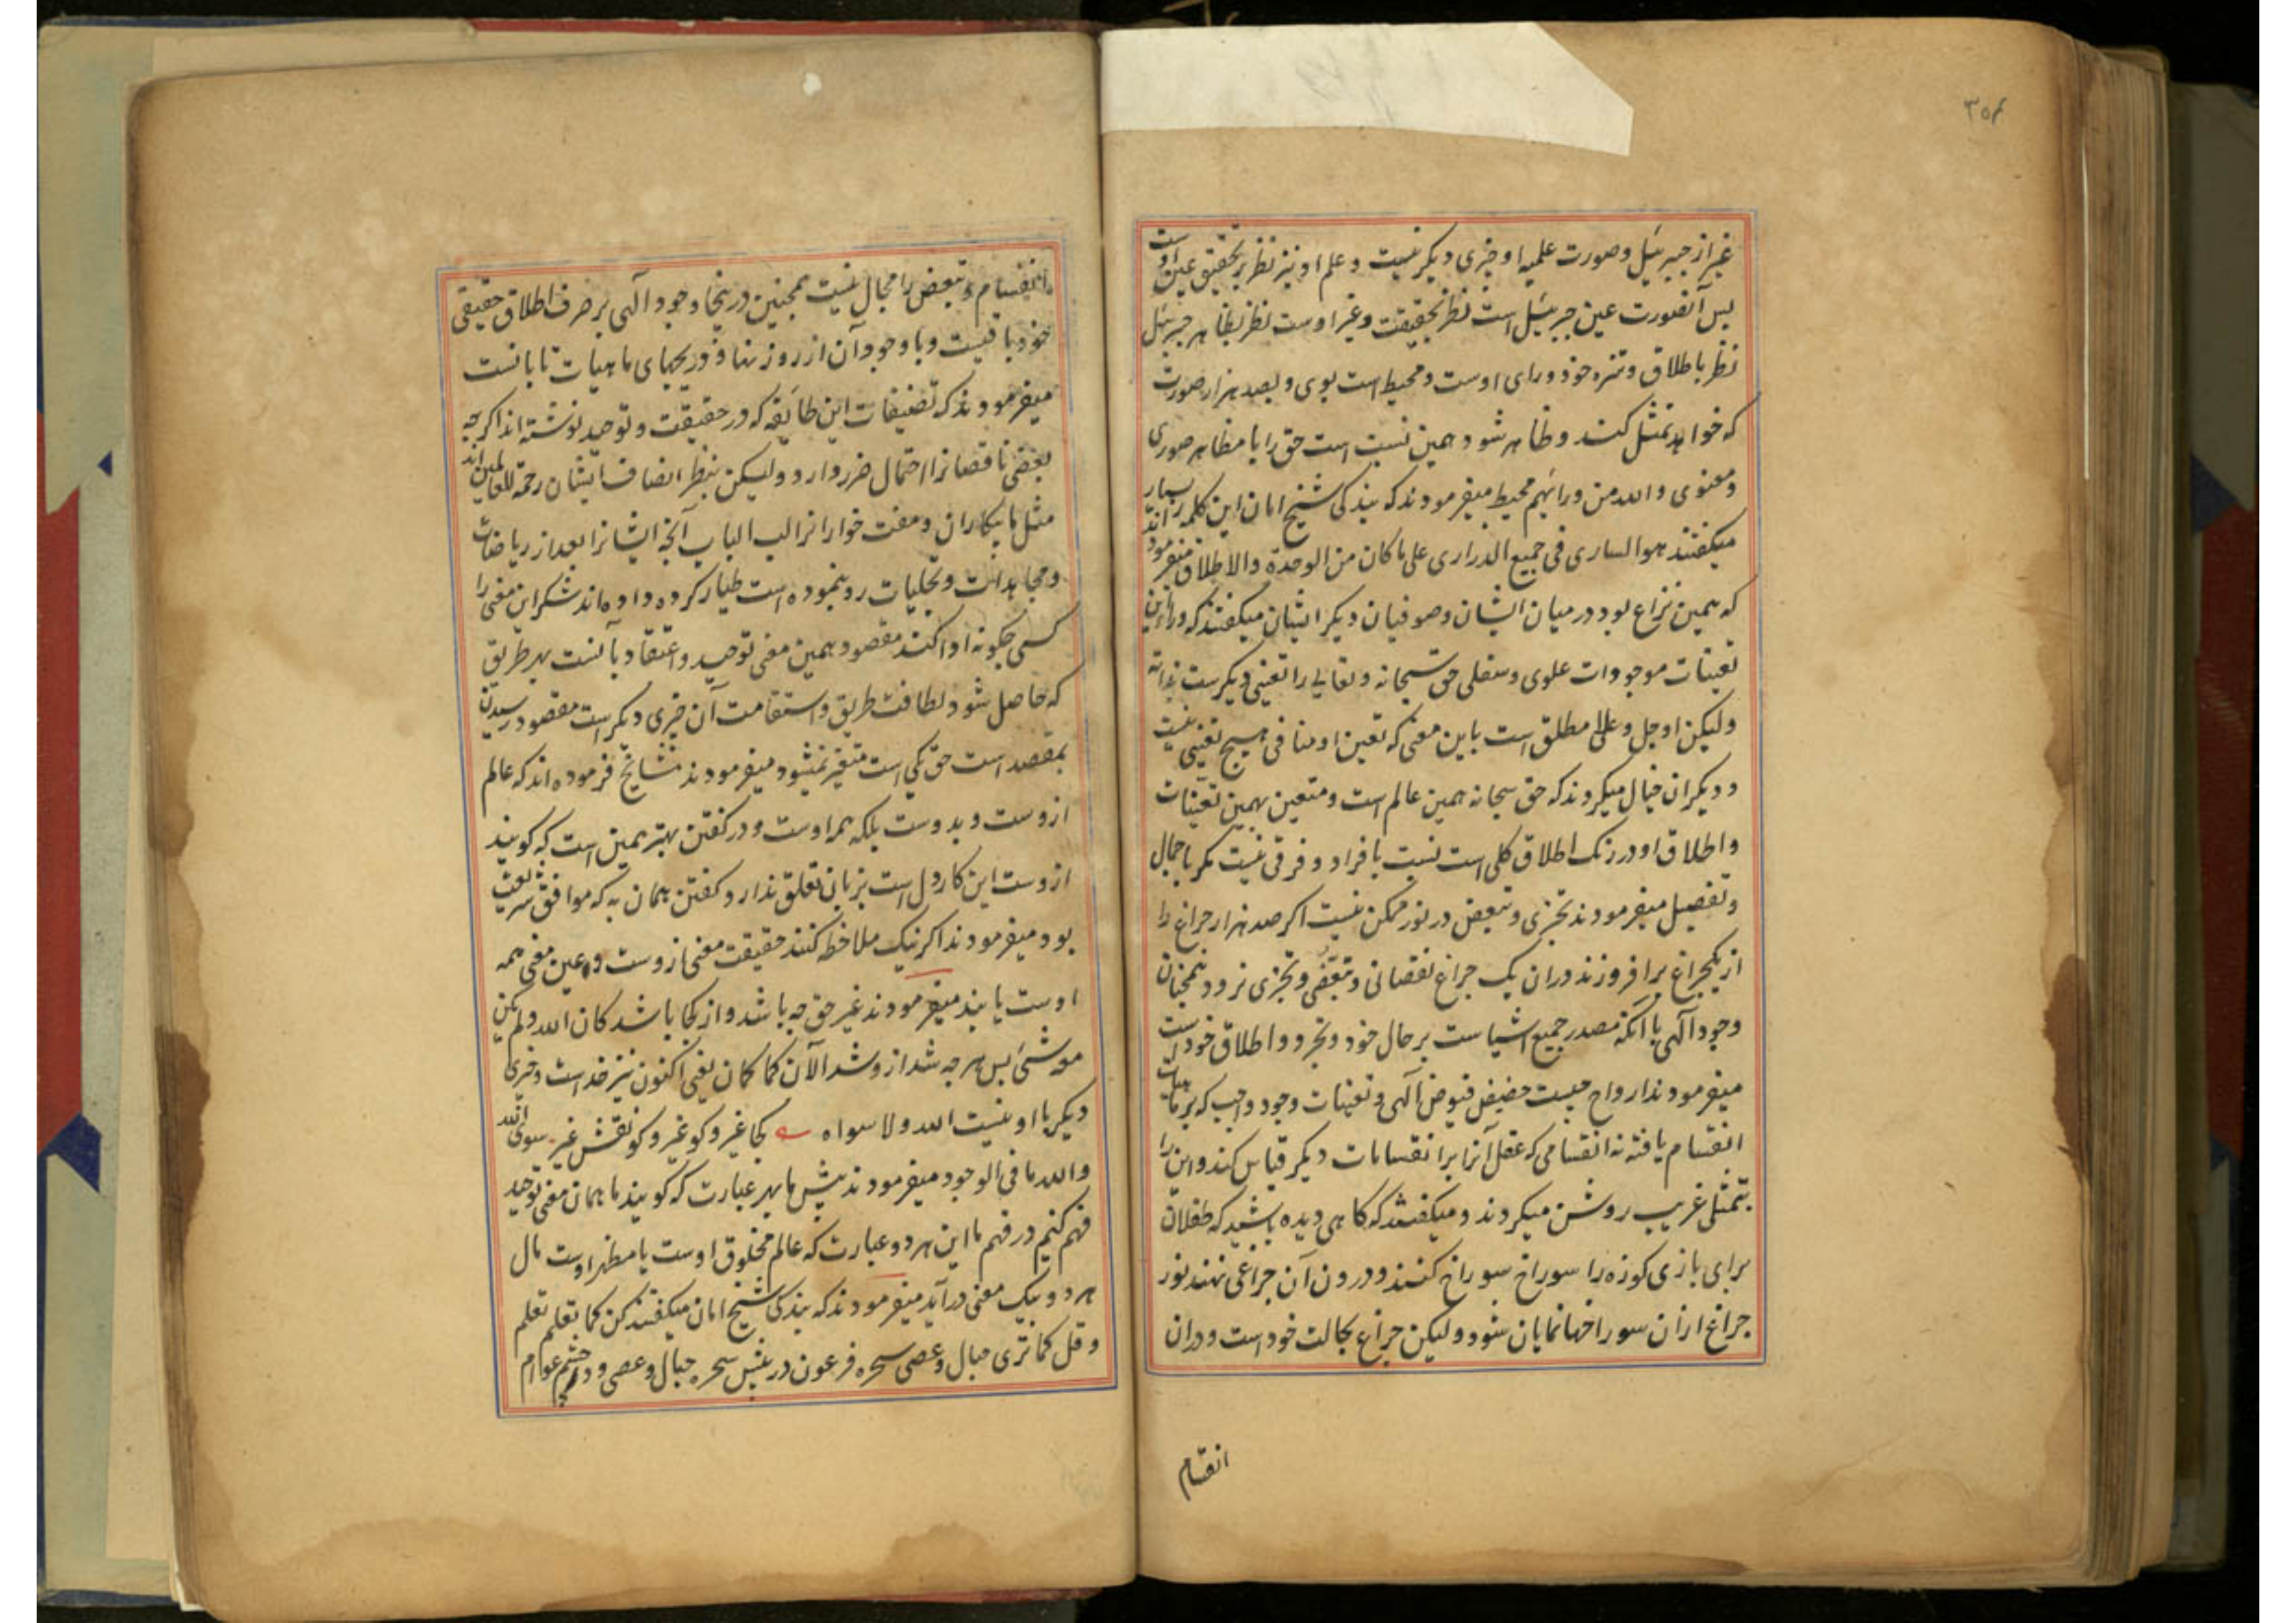 ۳۵۴
غیر از جبرئیل و صورت علمیه او چیزی دیگر نیست و علم او نیز نظر بتحقیق عین اوست
پس آنصورت عین جبرئیل است نظر بحقیقت و غیر اوست نظر بظاهر جبرئیل
نظر باطلاق و تنزه خود ورای اوست و محیط است بوی و بصد هزار صورت
که خواهد تمثل کند و ظاهر شود همین نسبت است حق را با مظاهر صوری
و معنوی والله من ورائهم محیط میفرمودند که بندگی شیخ امان این کلمه را بسیار
میگفتند هو الساری فی جمیع الدراری علی ما کان من الوحدة والاطلاق میفرمودند
که همین نزاع بود در میان ایشان و صوفیان دیگر ایشان میگفتند که ورای این
تعینات موجودات علوی و سفلی حق سبحانه و تعالی را تعینی دیگرست بذاته
ولیکن او جل و علا مطلق است باین معنی که تعین او منافی هیچ تعینی نیست
و دیگران خیال میکردند که حق سبحانه همین عالم است و متعین بهمین تعینات
و اطلاق او در رنک اطلاق کلی است نسبت بافراد و فرقی نیست مگر باجمال
و تفصیل میفرمودند تجزی و تبعض در نور ممکن نیست اگر صد هزار چراغ را
از یکچراغ برافروزند دران یک چراغ نقصانی و تبعضی و تجزی نرود همچنان
وجود آلهی با آنکه مصدر جمیع اشیاست بر حال خود و تجرد و اطلاق خودست
میفرمودند ارواح چیست حضیض فیوض آلهی و تعینات وجود واجب که بر ماهیات
انقسام یافته نه انقسامی که عقل آنرا بر انقسامات دیگر قیاس کند و این را
بتمثلی غریب روشن میکردند و میگفتند که گاهی دیده باشید که طفلان
برای بازی کوزه را سوراخ سوراخ کنند و درون آن چراغی نهند نور
چراغ ازان سوراخها نمایان شود و لیکن چراغ بحالت خود است و دران
انقسام
انقسام و تبعض را مجال نیست همچنین درینجا وجود آلهی بر صرف اطلاق حقیقی
خود باقیست و با وجود آن از روزنها و دریچهای ماهیات تابانست
میفرمودند که تصنیفات این طائفه که در حقیقت و توحید نوشته اند اگرچه
بعضی ناقصانرا احتمال ضرر دارد ولیکن بنظر انصاف ایشان رحمة للعالمین اند
مثل ما بیکاران و مفت خوارانرا لب الباب آنچه ایشانرا بعد از ریاضات
و مجاهدات و تجلیات رو نموده است طیار کرده داده اند شکر این معنی را
کسی چگونه ادا کند مقصود همین معنی توحید و اعتقاد بآنست بهر طریق
که حاصل شود لطافت طریق و استقامت آن چیزی دیگر است مقصود رسیدن
بمقصد است حق یکی است متغیر نمیشود میفرمودند مشایخ فرموده اند که عالم
ازوست و بدوست بلکه همه اوست و در گفتن بهتر همین است که گویند
ازوست این کار دل است بزبان تعلق ندارد گفتن همان به که موافق شریعت
بود میفرمودند اگر نیک ملاحظه کنند حقیقت معنی ازوست و عین معنی همه
اوست یابند میفرمودند غیر حق چه باشد و از کجا باشد کان الله و لم یکن
معه شئ پس هر چه شد ازو شد الآن کما کان یعنی اکنون نیز خداست و چیزی
دیگر با او نیست الله ولا سواه کجا غیر و کو غیر و کو نقش غیر سوی الله
والله ما فی الوجود میفرمودند پیش ما بهر عبارت که گویند ما همان معنی توحید
فهم کنیم در فهم ما این هر دو عبارت که عالم مخلوق اوست یا مظهر اوست مال
هر دو بیک معنی درآید میفرمودند که بندگی شیخ امان میگفتند کن کما تعلم تعلم
و قل کما تری حبال و عصی سحره فرعون در نفس سحره حبال و عصی و در چشم عوام